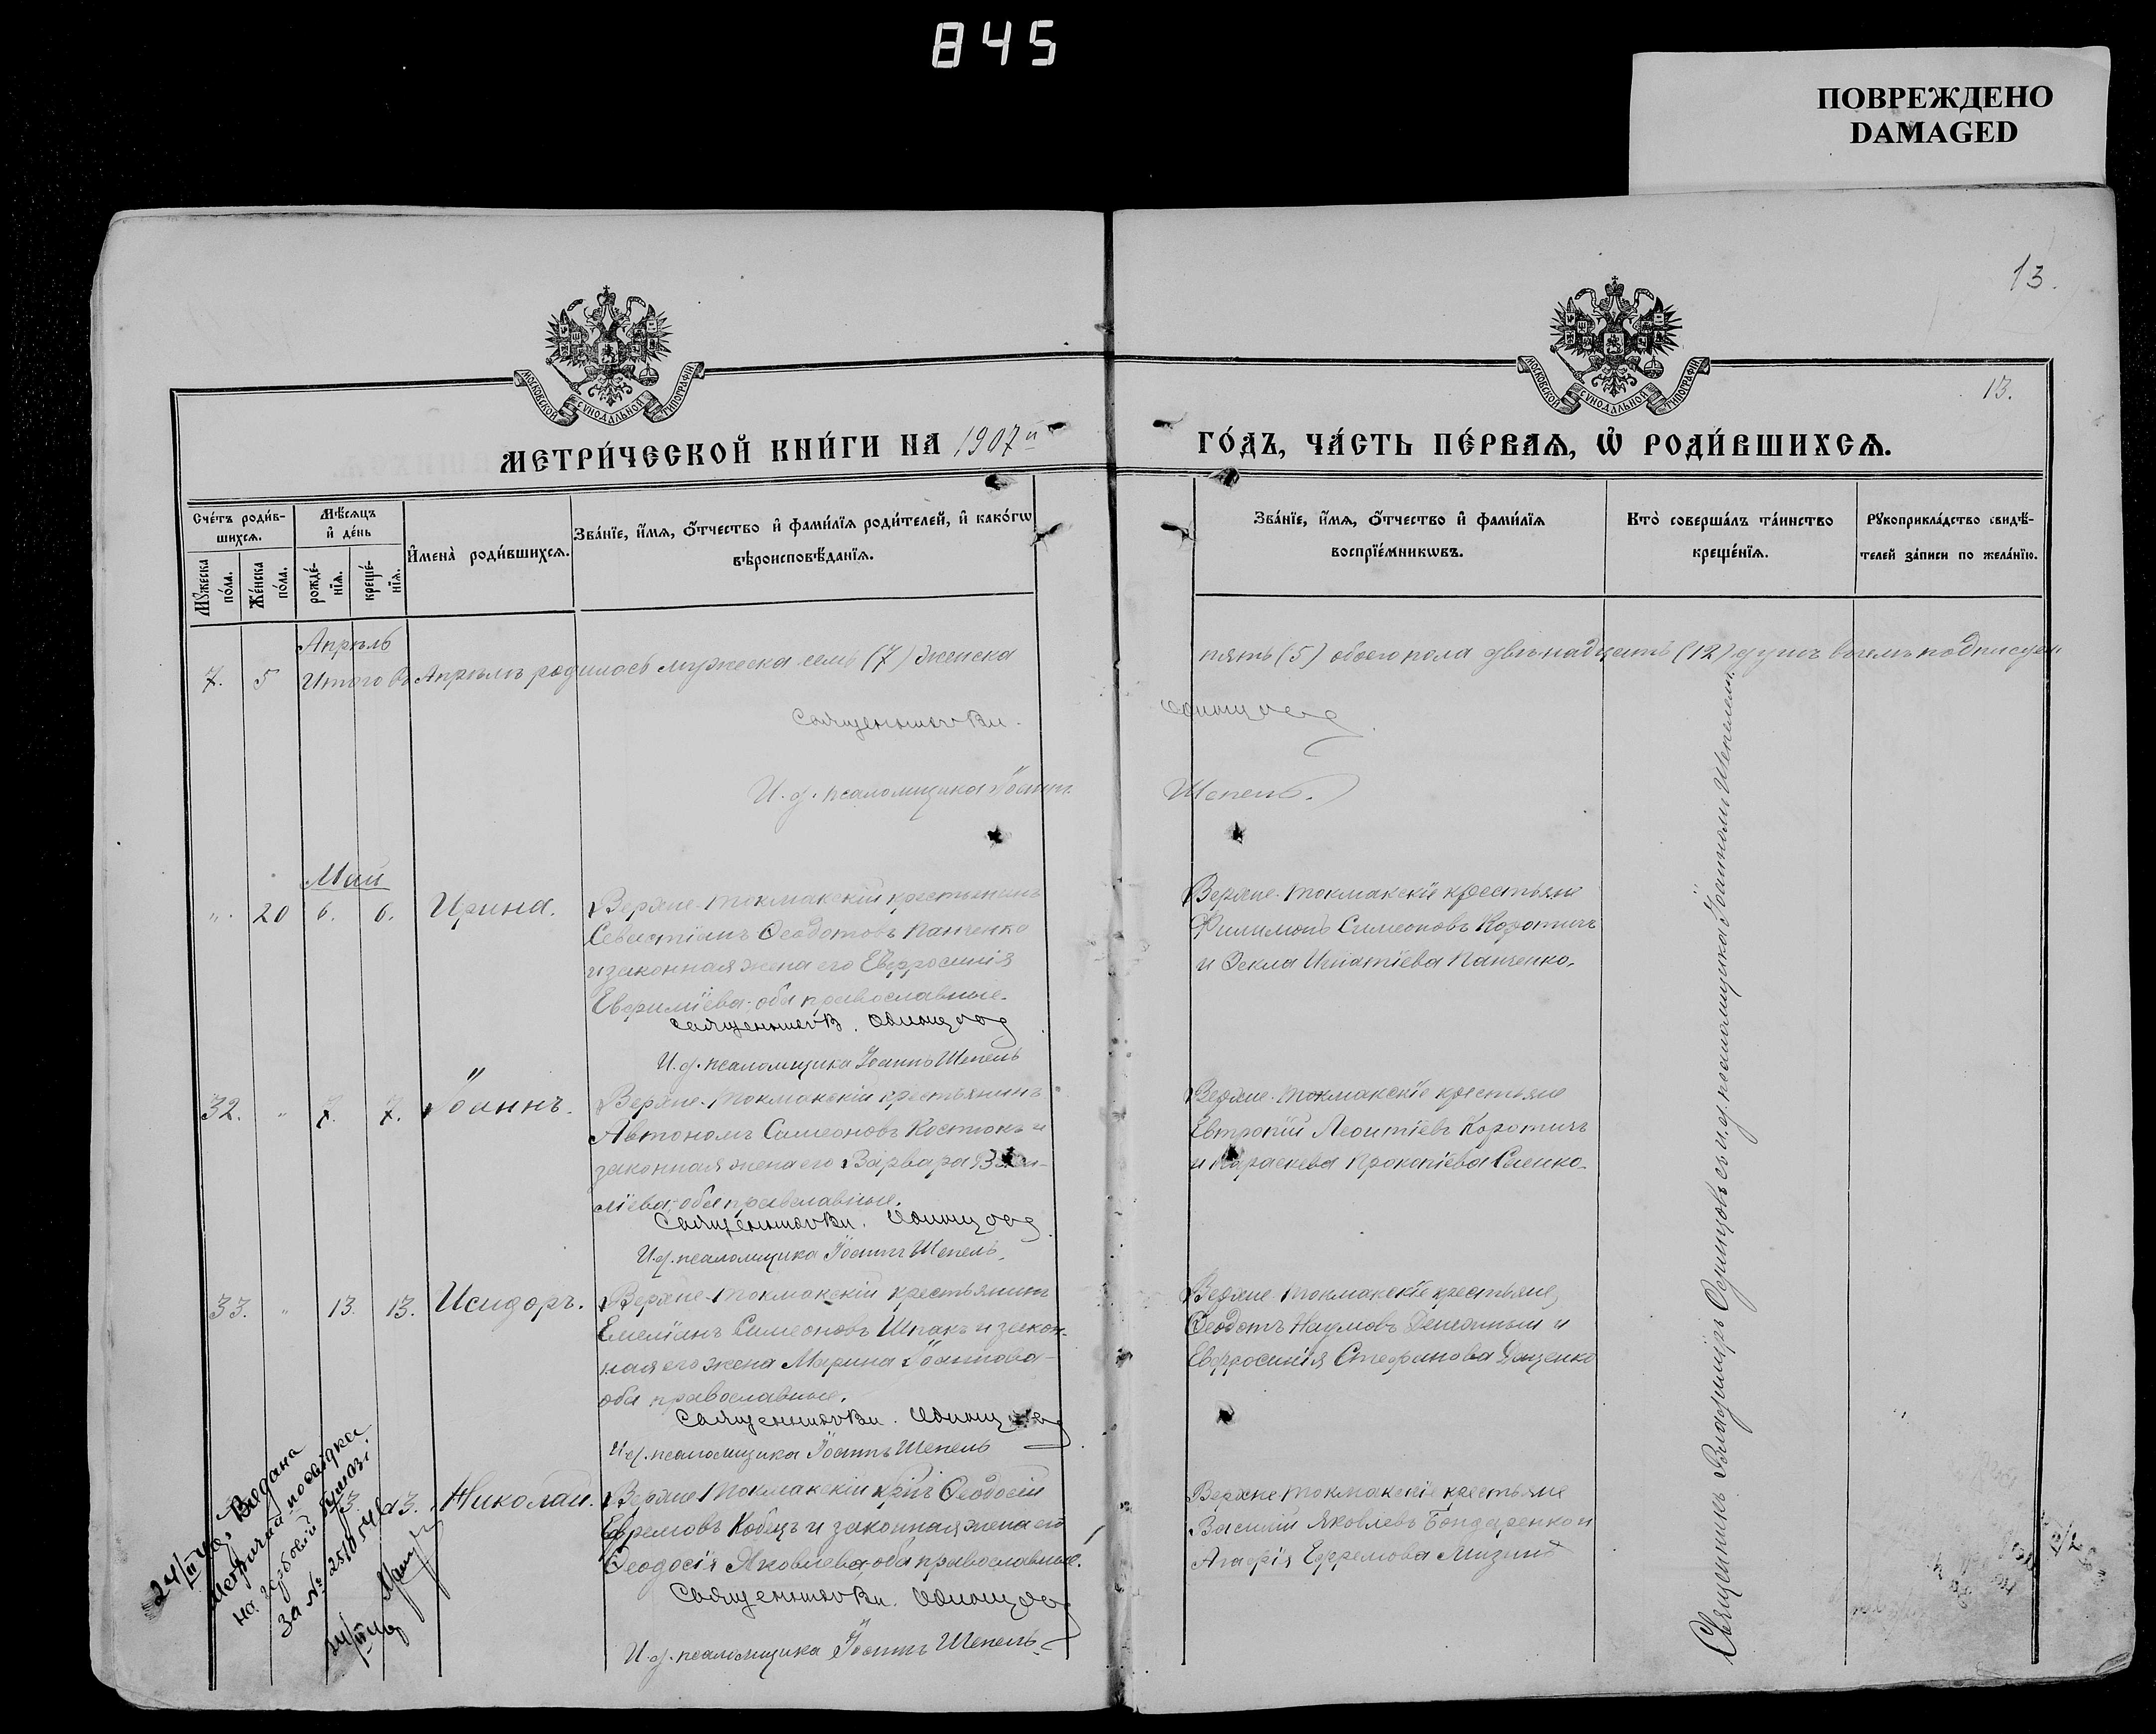 845
ПОВРЕЖДЕНО
DAMAGED
13.
МОСКОВСКОЙ СѴНОДАЛЬНОЙ ТИПОГРАФІИ
МОСКОВСКОЙ СѴНОДАЛЬНОЙ ТИПОГРАФІИ
13.
МЕТРИ́ЧЕСКОЙ КНИ́ГИ НА 1907й
ГО́ДЪ, ЧА́СТЬ ПЕ́РВАѦ, Ѡ҆ РОДИ́ВШИХСѦ.
Сче́тъ роди́в-
шихсѧ.
Мꙋ́жеска по́ла.
Же́нска по́ла.
Мѣ́сѧцъ
и҆ де́нь
рожде́-
нїѧ.
креще́-
нїѧ.
И҆мена̀ роди́вшихсѧ.
Зва́нїе, и҆́мѧ, ѻ҆́тчество и҆ фами́лїѧ роди́телей, и҆ како́гѡ
вѣроисповѣ́данїѧ.
Зва́нїе, и҆́мѧ, ѻ҆́тчество и҆ фами́лїѧ
воспрїе́мникѡвъ.
Кто̀ соверша́лъ та́инство
креще́нїѧ.
Рꙋкоприкла́дство свидѣ́-
телей за́писи по жела́нїю.
Апрѣль
7. 5 Итого въ Апрѣлѣ родилось мужеска семь (7) женска
пять (5) обоего пола двѣнадцать (12) душъ въ чемъ подписуемся
Священникъ Вл. Одинцовъ
И. д. псаломщика Іоаннъ Шепель.
Май
". 20 6. 6. Ирина.
Верхне-Токмакскій крестьянинъ
Севастіанъ Ѳеодотовъ Панченко
и законная жена его Евфросинія
Евфиміева, оба православные.
Священникъ В. Одинцовъ
И. д. псаломщика Іоаннъ Шепель
Верхне-Токмакскіе крестьяне
Филимонъ Симеоновъ Коротичъ
и Ѳекла Игнатіева Панченко.
32. " 7. 7. Іоаннъ.
Верхне-Токмакскій крестьянинъ
Автономъ Симеоновъ Костюкъ и
законная жена его Варвара
ліева, оба православные.
Священникъ Вл. Одинцовъ
И. д. псаломщика Іоаннъ Шепель.
Верхне-Токмакскіе крестьяне
Евтропій Леонтіевъ Коротичъ
и Параскева Прокопіева
33. " 13. 13. Исидоръ.
Верхне-Токмакскій крестьянинъ
Емеліанъ Симеоновъ Шпакъ и закон-
ная его жена Марина Іоаннова
оба православные.
Священникъ Вл. Одинцовъ
И. д. псаломщика Іоаннъ Шепель
Верхне-Токмакскіе крестьяне
Ѳеодотъ Наумовъ и
Евфросинія Стефанова Даценко
13. Николай.
Верхне-Токмакскій Ѳеодосій
Ефремовъ Кобецъ и законная жена его
Ѳеодосія Яковлева, оба православные.
Священникъ Вл. Одинцовъ
И. д. псаломщика Іоаннъ Шепель
Верхне-Токмакскіе крестьяне
Василій Яковлевъ Бондаренко и
Агафія Ефремова
Священникъ Владиміръ Одинцовъ съ и. д. псаломщика Іоанномъ Шепелемъ.
Видана
метрична повідка
на гербовій бумазі
за №